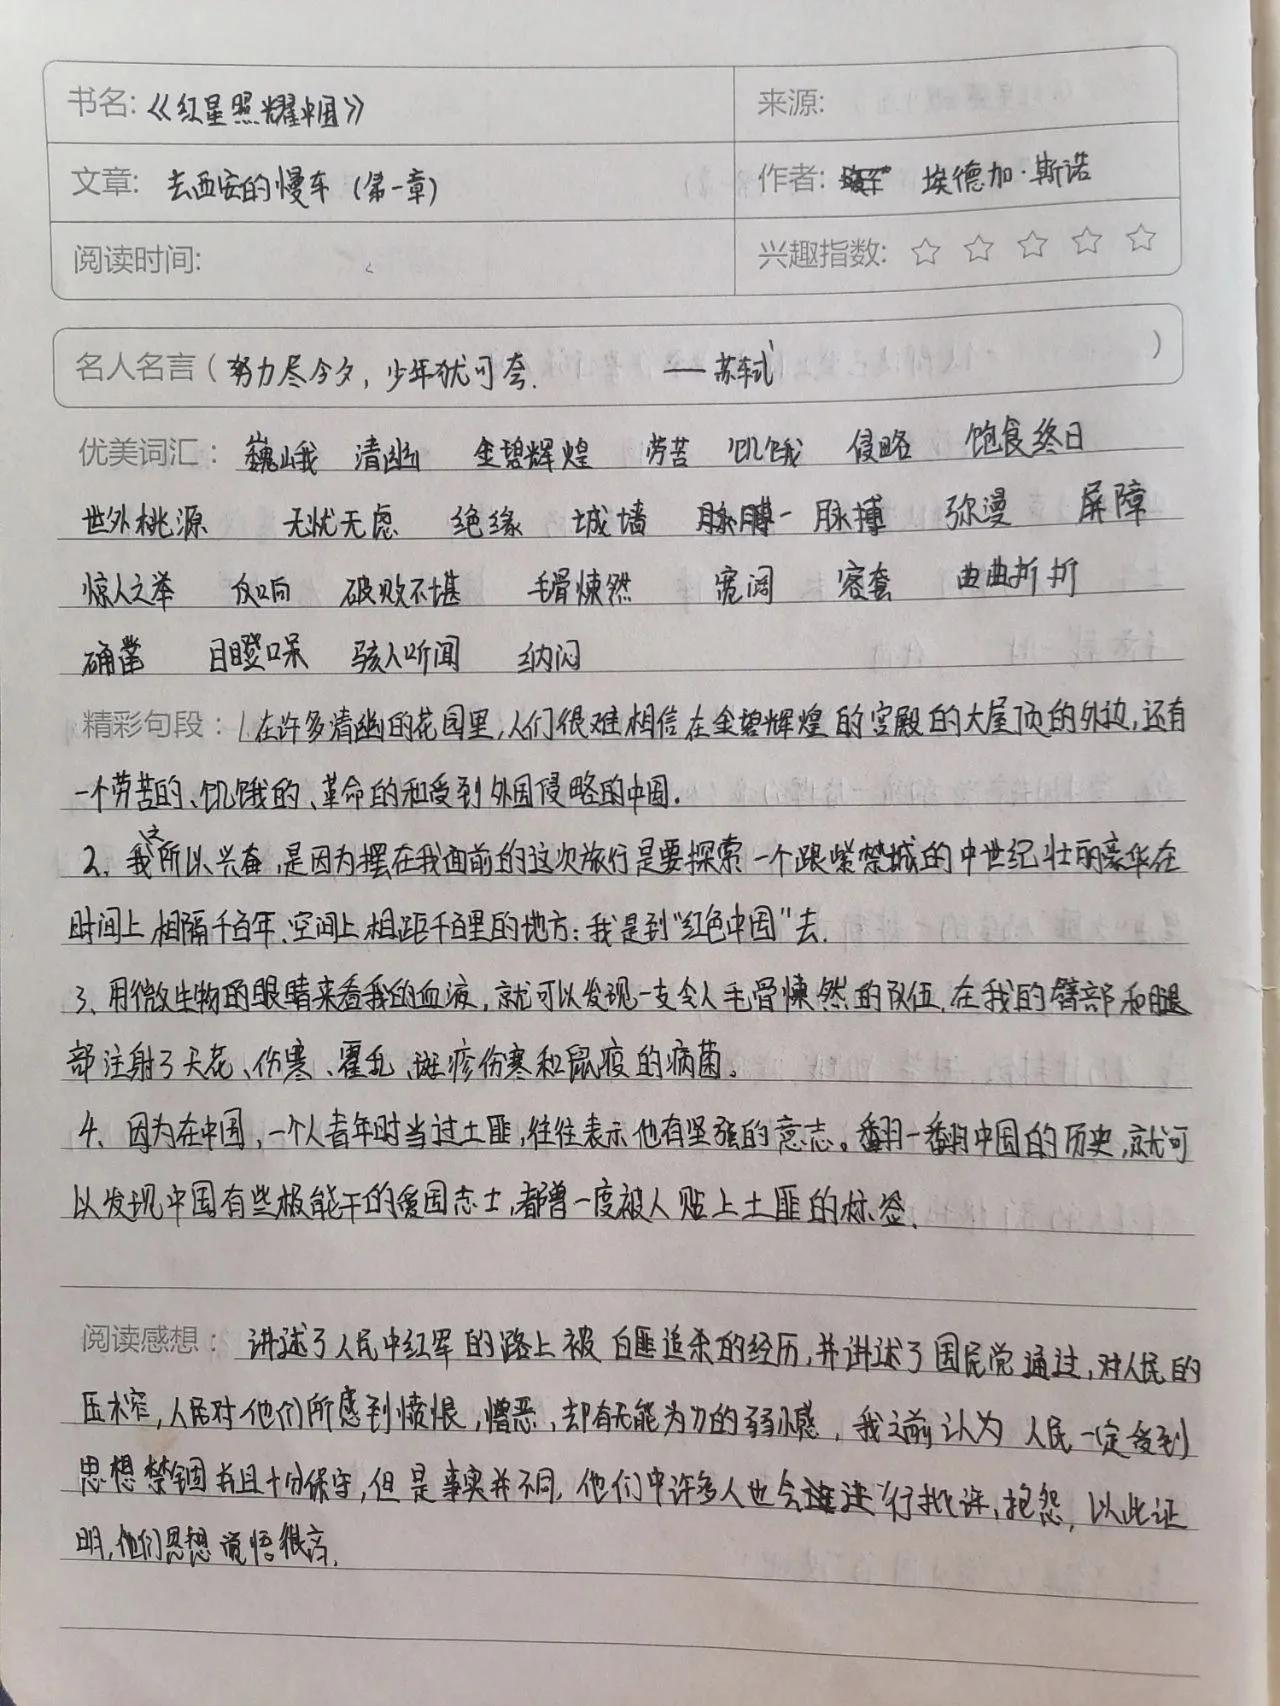 书名:《红星照耀中国》 来源:
文章: 去西安的慢车 (第一章) 作者: 埃德加·斯诺
阅读时间: 兴趣指数: ☆ ☆ ☆ ☆ ☆
名人名言 ( 努力尽今夕, 少年犹可夸. ——苏轼 )
优美词汇: 巍峨 清幽 金碧辉煌 劳苦 饥饿 侵略 饱食终日
世外桃源 无忧无虑 绝缘 城墙 脉膊 脉搏 弥漫 屏障
惊人之举 反响 破败不堪 毛骨悚然 宽阔 客套 曲曲折折
确凿 目瞪口呆 骇人听闻 纳闷
精彩句段: 1.在许多清幽的花园里,人们很难相信在金碧辉煌的宫殿的大屋顶的外边,还有
一个劳苦的、饥饿的、革命的和受到外国侵略的中国.
2、我之所以兴奋,是因为摆在我面前的这次旅行是要探索一个跟紫禁城的中世纪壮丽豪华在
时间上相隔千百年、空间上相距千百里的地方:我是到“红色中国”去.
3、用微生物的眼睛来看我的血液,就可以发现一支令人毛骨悚然的队伍,在我的臂部和腿
部注射了天花、伤寒、霍乱、斑疹伤寒和鼠疫的病菌。
4、因为在中国,一个人青年时当过土匪,往往表示他有坚强的意志。翻一翻中国的历史,就可
以发现中国有些极能干的爱国志士,都曾一度被人贴上土匪的标签.
阅读感想: 讲述了人民中红军的路上被白匪追杀的经历,并讲述了国民党通过,对人民的
压榨,人民对他们所感到愤恨,憎恶,却有无能为力的弱小感,我之前认为人民一定受到
思想禁锢并且十分保守,但是事实并不同,他们中许多人也会进行批评、抱怨,以此证
明,他们思想觉悟很高.